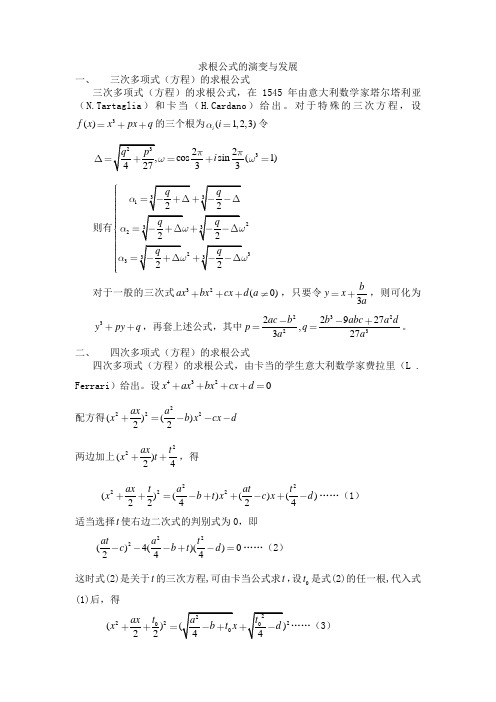 求根公式的演变与发展
一、 三次多项式（方程）的求根公式
三次多项式（方程）的求根公式，在 1545 年由意大利数学家塔尔塔利亚
（N.Tartaglia）和卡当（H.Cardano）给出。对于特殊的三次方程，设
f(x)=x³+px+q 的三个根为 αᵢ(i=1,2,3) 令
Δ=√(q²/4+p³/27), ω=cos 2π/3 + i sin 2π/3 (ω³=1)
α₁=∛(-q/2+Δ)+∛(-q/2-Δ)
则有 α₂=∛(-q/2+Δ)ω+∛(-q/2-Δ)ω²
α₃=∛(-q/2+Δ)ω²+∛(-q/2-Δ)ω³
对于一般的三次式 ax³+bx²+cx+d(a≠0)，只要令 y=x+b/3a，则可化为
y³+py+q，再套上述公式，其中 p=(2ac-b²)/3a², q=(2b³-9abc+27a²d)/27a³.
二、 四次多项式（方程）的求根公式
四次多项式（方程）的求根公式，由卡当的学生意大利数学家费拉里（L .
Ferrari）给出。设 x⁴+ax³+bx²+cx+d=0
配方得 (x²+ax/2)²=(a²/2-b)x²-cx-d
两边加上 (x²+ax/2)t+t²/4，得
(x²+ax/2+t/2)²=(a²/4-b+t)x²+(at/2-c)x+(t²/4-d)……（1）
适当选择 t 使右边二次式的判别式为 0，即
(at/2-c)²-4(a²/4-b+t)(t²/4-d)=0……（2）
这时式(2)是关于 t 的三次方程,可由卡当公式求 t，设 t₀ 是式(2)的任一根,代入式
(1)后，得
(x²+ax/2+t₀/2)²=(√(a²/4-b+t₀)x+√(t₀²/4-d))²……（3）